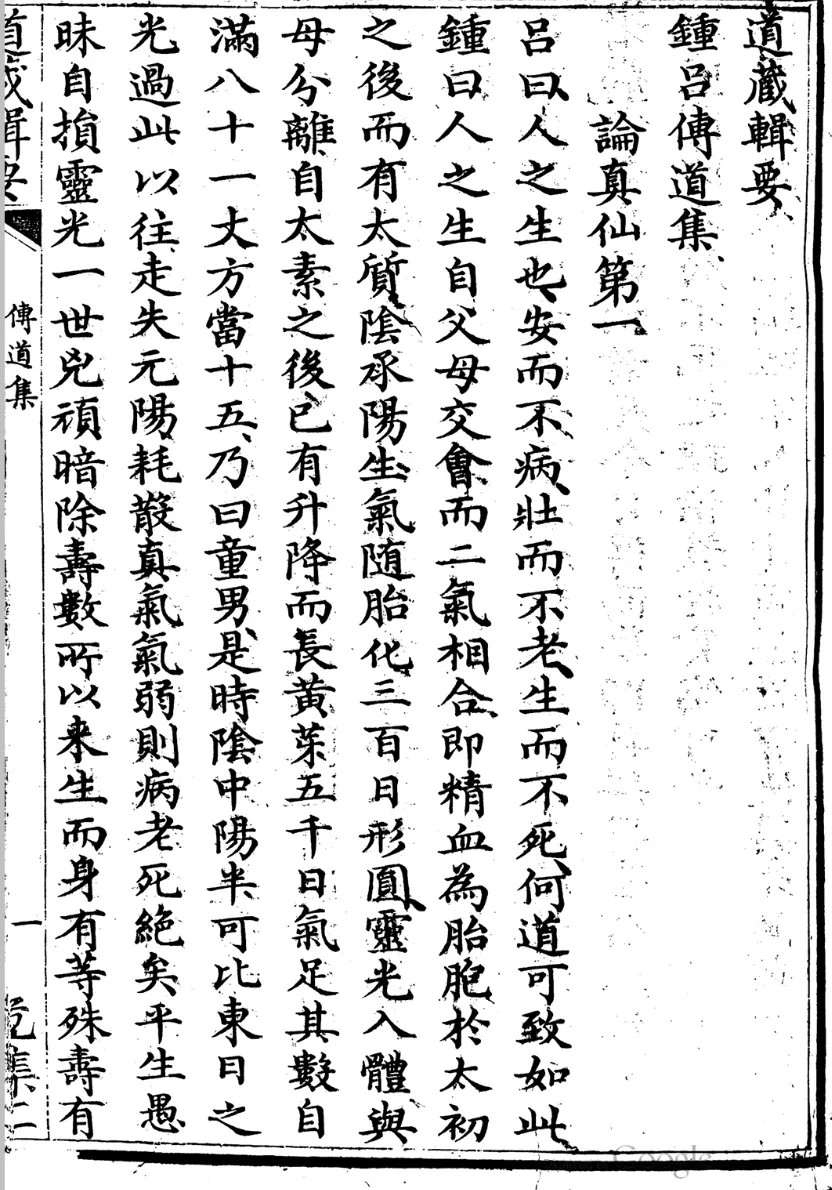 道藏輯要
鍾呂傳道集
論真仙第一
呂曰人之生也安而不病壯而不老生而不死何道可致如此
鍾曰人之生自父母交會而二氣相合即精血為胎胞於太初
之後而有太質陰承陽生氣随胎化三百日形圓靈光入體與
母分離自太素之後已有升降而長黃芽五千日氣足其數自
滿八十一丈方當十五乃曰童男是時陰中陽半可比東日之
光過此以往走失元陽耗散真氣氣弱則病老死絕矣平生愚
昧自損靈光一世兇頑暗除壽數所以来生而身有等殊壽有
道藏輯要 傳道集 一 危集二
Google